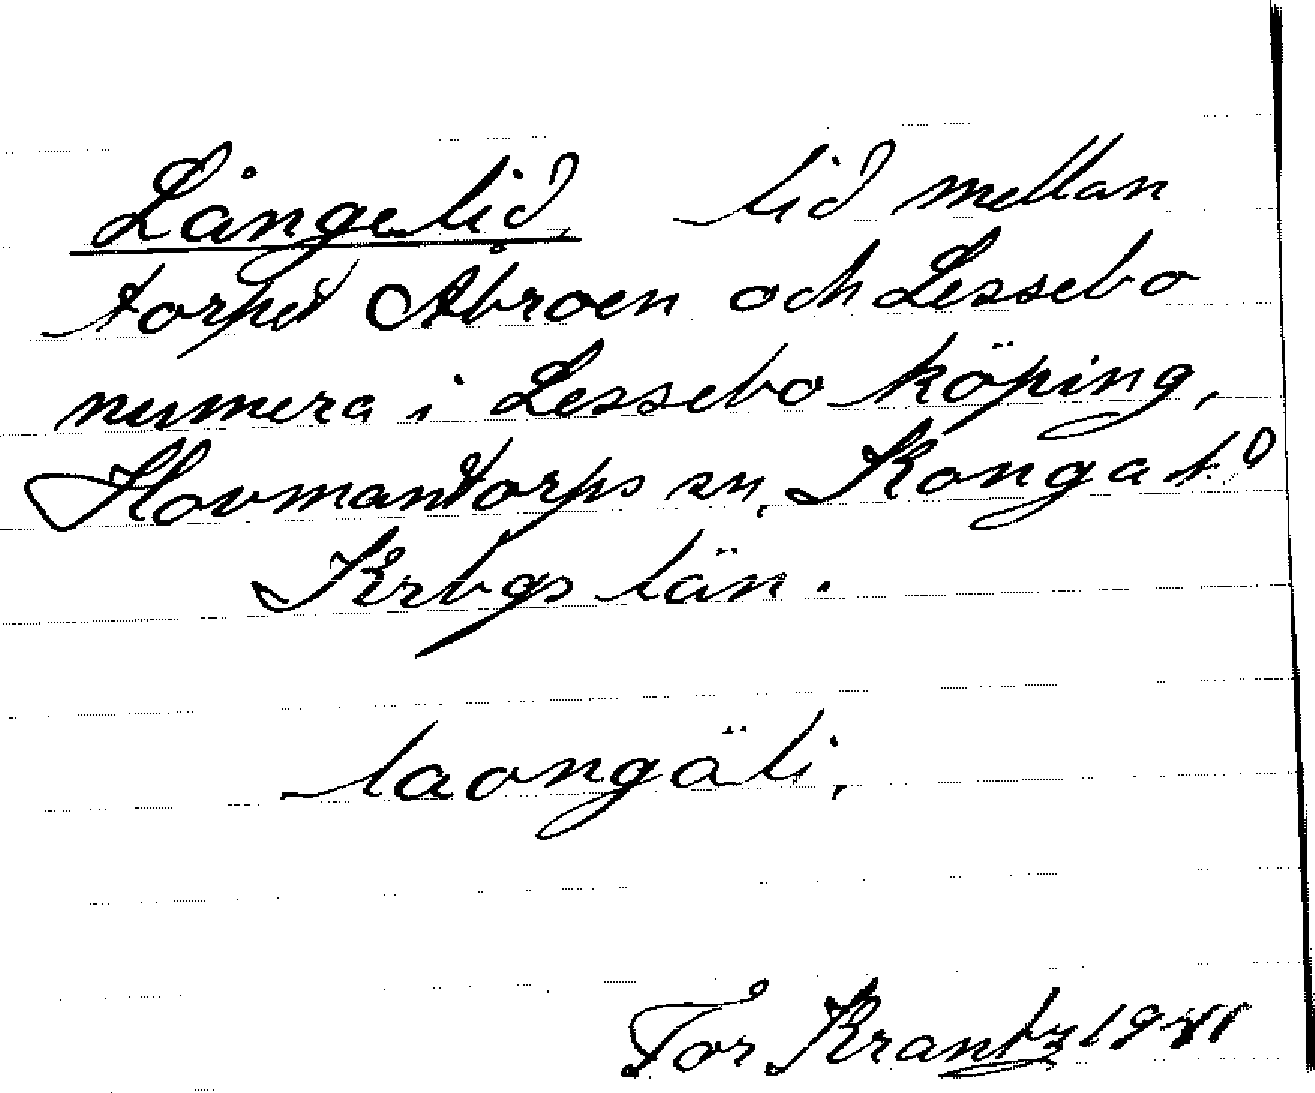 Långelid, lid mellan
torpet Åbroen och Lessebo
numera i Lessebo köping,
Hovmantorps sn, Konga hd
Krbgs län.
laongäli,
Tor Krantz 1941